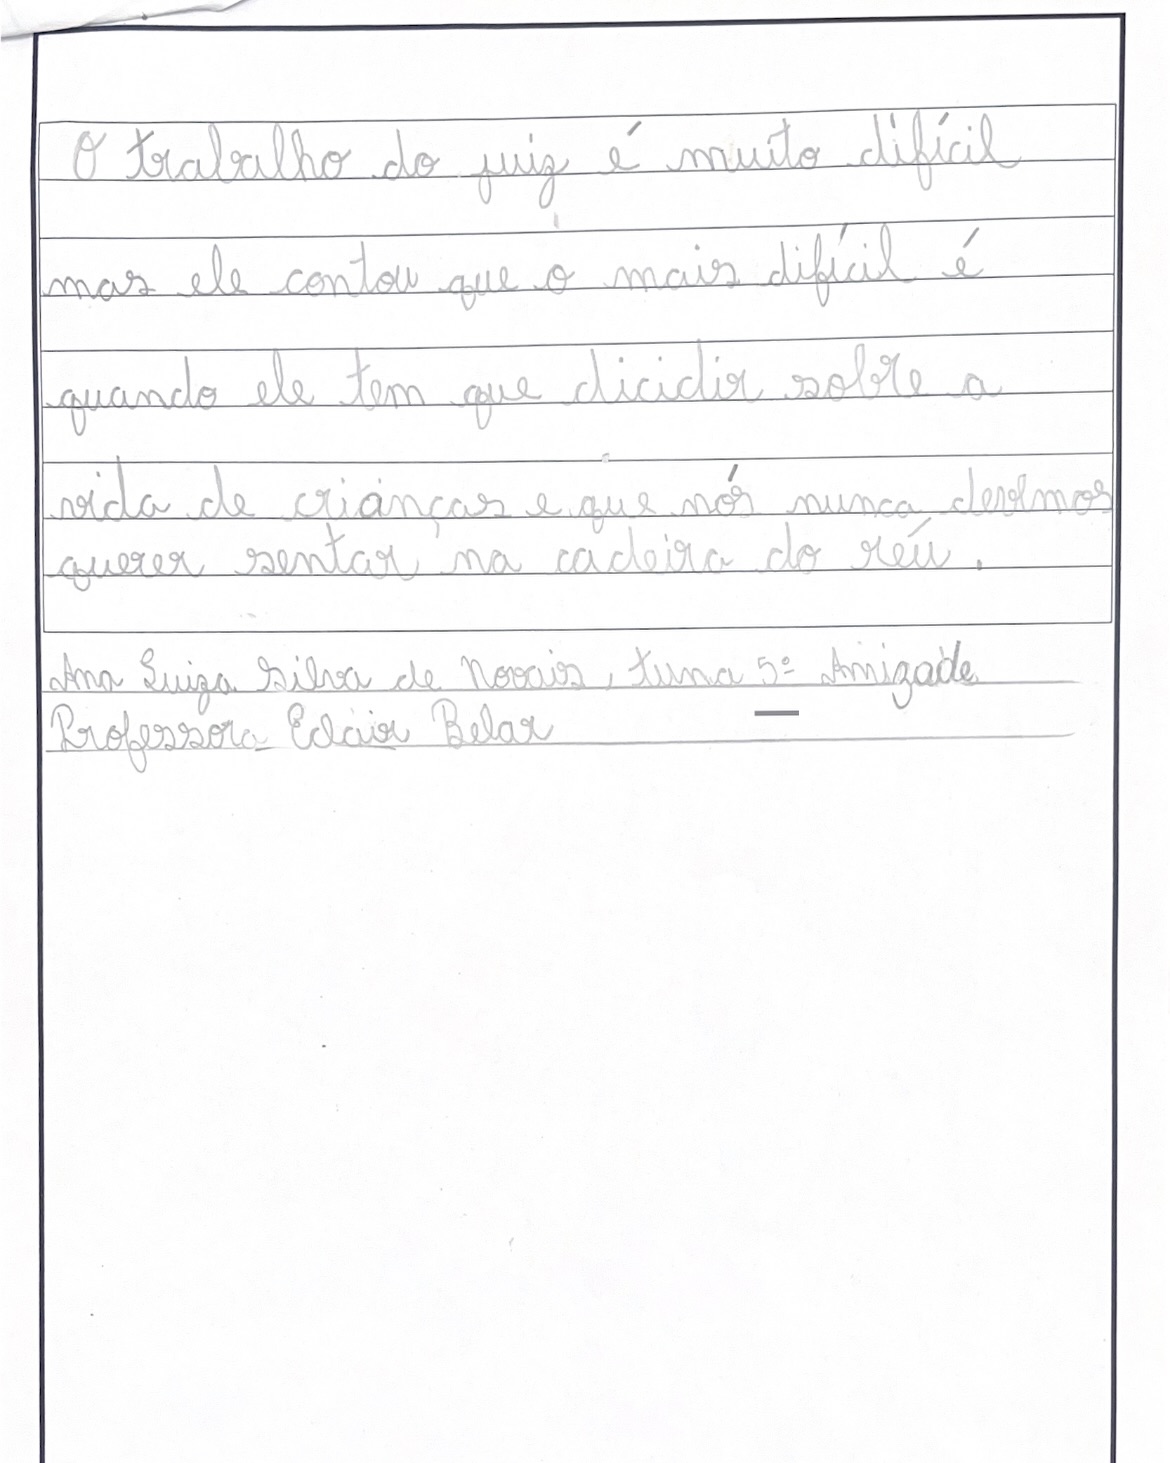 O trabalho do juiz é muito difícil
mas ele contou que o mais difícil é
quando ele tem que dicidir sobre a
vida de crianças e que nós nunca devemos
querer sentar na cadeira do réu.
Ana Luiza Silva de Novais, tuma 5º Amizade
Professora Edair Belar